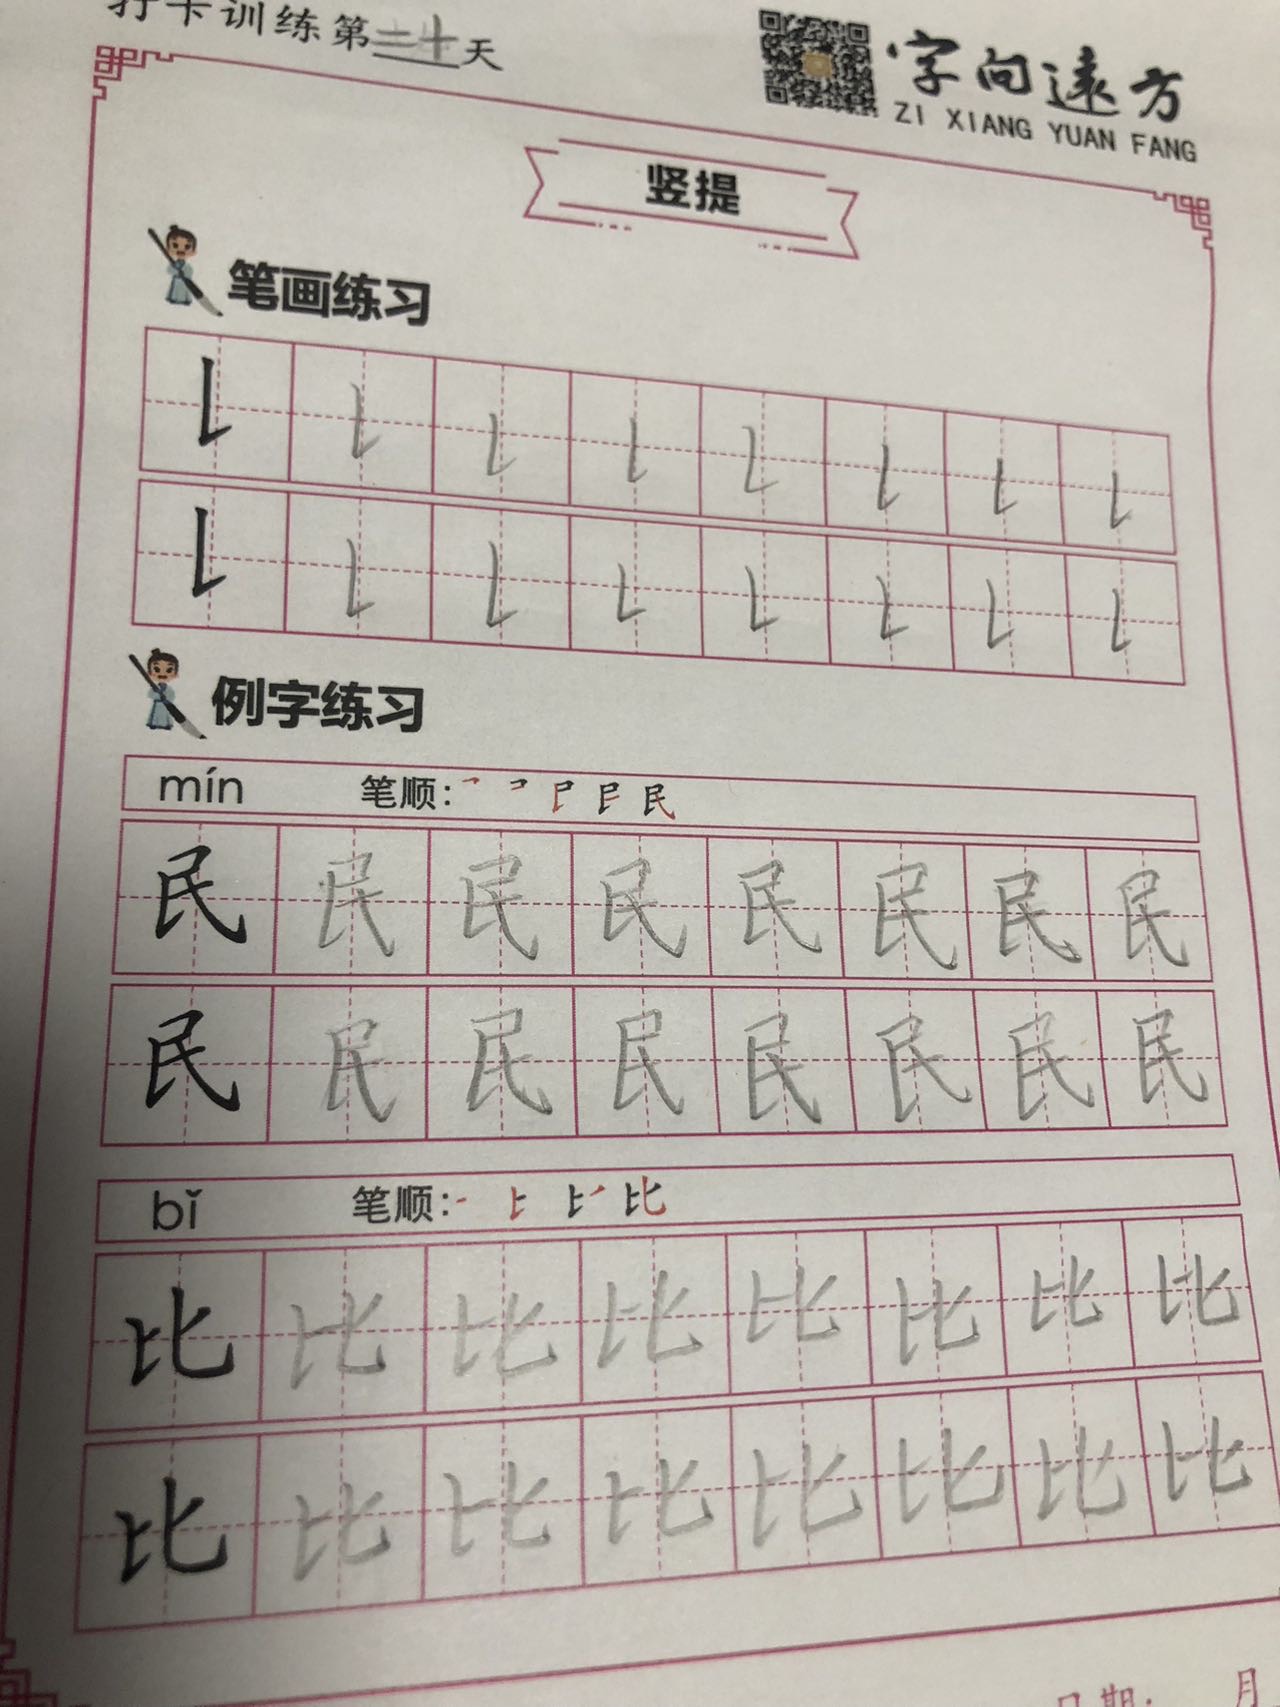 打卡训练第二十天
字向遠方
ZI XIANG YUAN FANG
竖提
笔画练习
㇙ ㇙ ㇙ ㇙ ㇙ ㇙ ㇙ ㇙
㇙ ㇙ ㇙ ㇙ ㇙ ㇙ ㇙ ㇙
例字练习
mín 笔顺: 民
民 民 民 民 民 民 民 民
民 民 民 民 民 民 民 民
bǐ 笔顺: 比
比 比 比 比 比 比 比 比
比 比 比 比 比 比 比 比
日期: 月